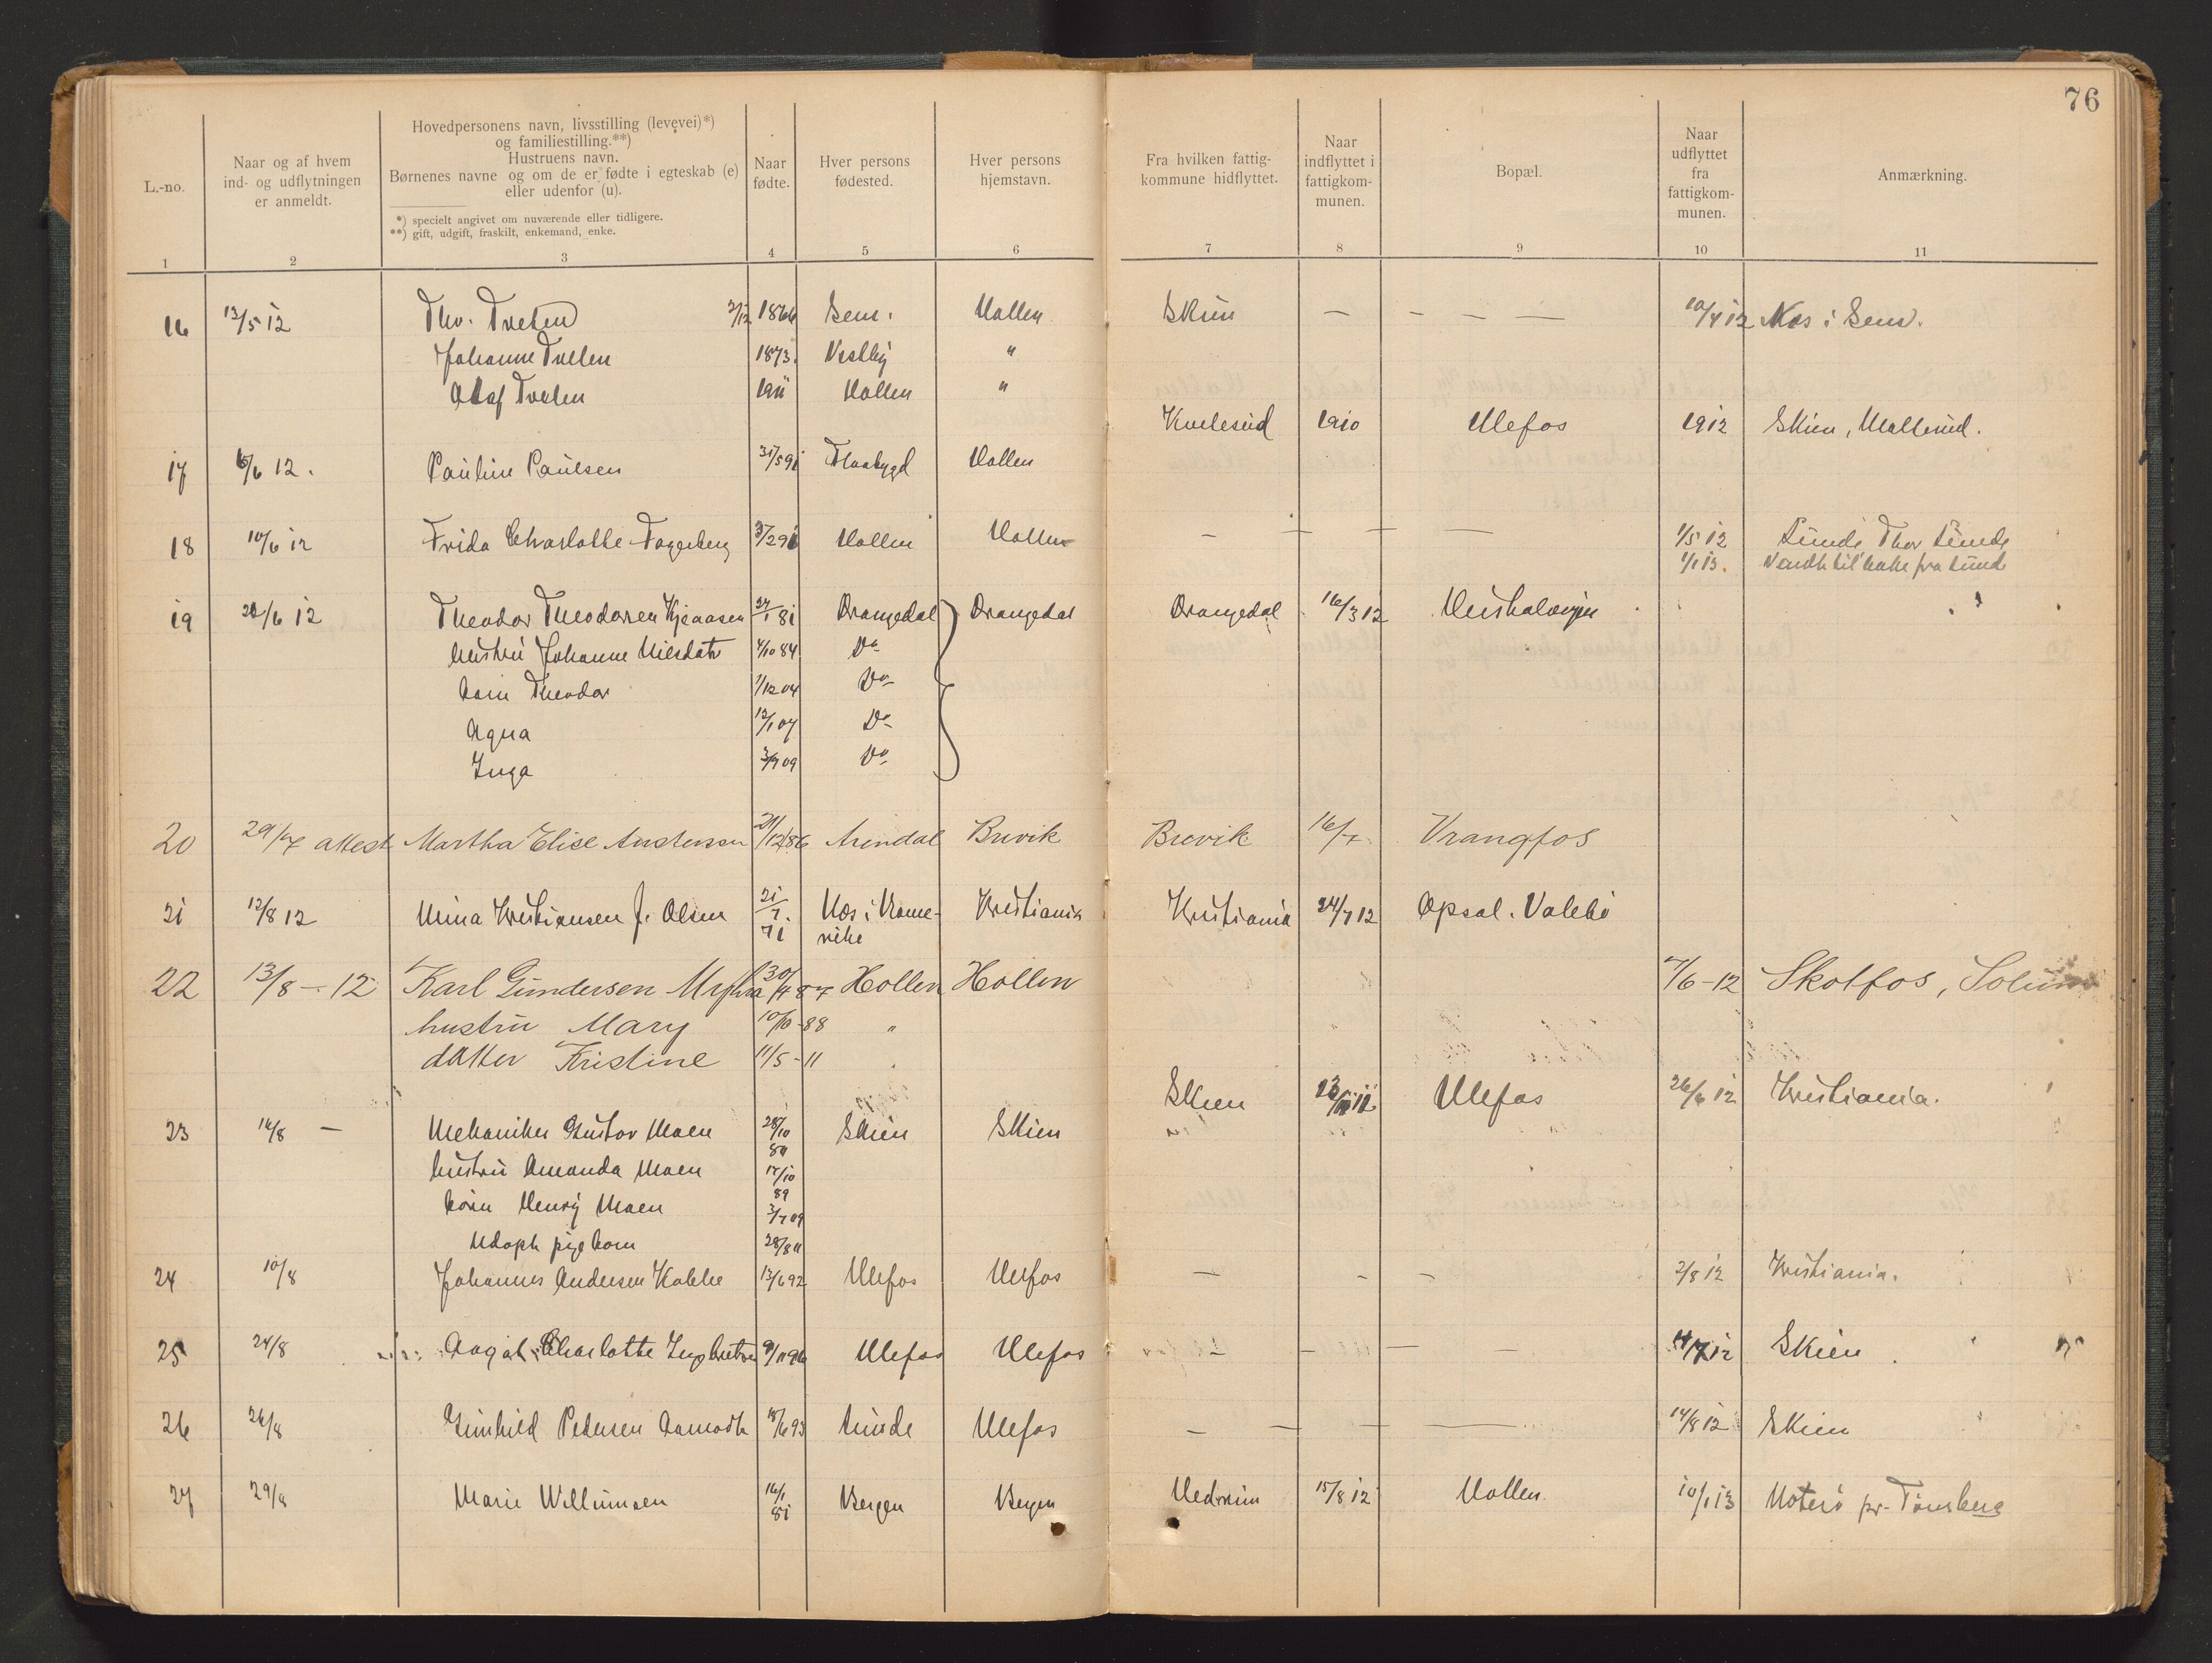 76
L.-no.
Naar og af hvem
ind- og udflytningen
er anmeldt.
Hovedpersonens navn, livsstilling (levevei)*)
og familiestilling.**)
Hustruens navn.
Børnenes navne og om de er fødte i egteskab (e)
eller udenfor (u).
*) specielt angivet om nuværende eller tidligere.
**) gift, udgift, fraskilt, enkemand, enke.
Naar
fødte.
Hver persons
fødested.
Hver persons
hjemstavn.
Fra hvilken fattig-
kommune hidflyttet.
Naar
indflyttet i
fattigkom-
munen.
Bopæl.
Naar
udflyttet
fra
fattigkom-
munen.
Anmærkning.
1 2 3 4 5 6 7 8 9 10 11
16 13/5 12 Thv. Tveten 2/12 1866 Hollen Skien — — — — 10/4 12 Næs i
Johanne Tveten 1873. Vestby "
Olaf Tveten 1911 Hollen "
Kviteseid 1910 Ulefos 1912 Skien,
17 6/6 12. Pauline Paulsen 31/5 91 Flaabygd Hollen
18 10/6 12 Frida Charlotte Fagerberg Hollen Hollen — — — — 1/5 12 Lunde Thor Lunde
1/1 13. Vendt tilbake fra Lunde
19 22/6 12 Theodor Theodorsen Kjeaasen 27/1 81 Drangedal Drangedal Drangedal 16/3 12
hustru Johanne Nilsdatr 4/10 84 Do
barn Theodor 1/12 04 Do
Agna 12/1 07 Do
Inga 3/9 09 Do
20 29/7 attest Martha Elise Austensen 21/12 86 Arendal Brevik Brevik 16/7 Vrangfos
21 12/8 12 Mina Kristiansen f. Olsen 21/7. Næs i Kristiania Kristiania 24/7 12 Opsal. Valebø
71
22 13/8 – 12 Karl Gundersen Myhra 30/4 87 Hollen Hollen 7/6–12 Skotfos, Solum
hustru Mary 10/10–88 "
datter Kristine 11/5–11
Skien Ulefos 26/6 12 Kristiania.
23 14/8 — Mekaniker Gustav Moen 28/10 Skien Skien
hustru Amanda Moen 17/10
89
barn Henry Moen 3/7 09
Udøpt pigebarn 28/8 11
24 10/8 Johannes Andersen Kabbe 13/6 92 Ulefos Ulefos — — — 2/8 12 Kristiania.
25 24/8 Aagot Charlotte Ingebretsen 9/11 96 Ulefos Ulefos — — — — Skien
26 26/8 Gunhild Pedersen Aamodt 18/6 93 Lunde Ulefos — — — — 14/8 12 Skien
27 29/8 Marie Willumsen 16/1 Bergen Bergen Hedrum 15/8 12 Hollen 10/1 13 Nøterø pr. Tønsberg
81